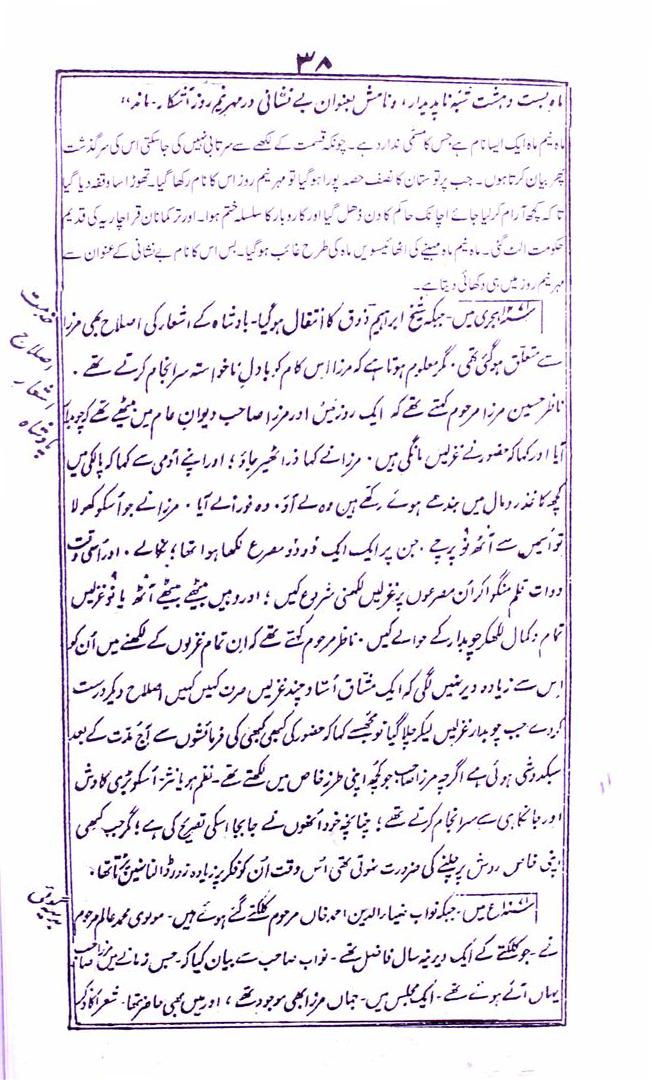 ۳۸
ماہ بست و ہشت شبہ ناپدیدار، و نامش بعنوان بے نشانی در مہر نیم روز آشکار ماند"
ماہ نیم ماہ ایک ایسا نام ہے جس کا مسمیٰ ندارد ہے۔ چونکہ قسمت کے لکھے سے سرتابی نہیں کی جاسکتی اس کی سرگذشت
پھر بیان کرتا ہوں۔ جب پرتوستان کا نصف حصہ پورا ہوگیا تو مہر نیم روز اس کا نام رکھا گیا۔ تھوڑا سا وقفہ دیا گیا
تاکہ کچھ آرام کرلیا جائے اچانک حاکم کا دن ڈھل گیا اور کاروبار کا سلسلہ ختم ہوا۔ اور ترکمانان قراچاریہ کی قدیم
حکومت الٹ گئی۔ ماہ نیم ماہ مہینے کی اٹھائیسویں ماہ کی طرح غائب ہوگیا۔ بس اس کا نام بے نشانی کے عنوان سے
مہر نیم روز میں ہی دکھائی دیتا ہے۔
۱۲۷۱ ہجری میں۔ جبکہ شیخ ابراہیم ذوق کا انتقال ہوگیا۔ بادشاہ کے اشعار کی اصلاح بھی مرزا
سے متعلق ہوگئی تھی۔ مگر معلوم ہوتا ہے کہ مرزا اس کام کو بادلِ ناخواستہ سرانجام کرتے تھے۔
ناظر حسین مرزا مرحوم کہتے تھے کہ ایک روز میں اور مرزا صاحب دیوانِ عام میں بیٹھے تھے کہ چوبدار
آیا اور کہا کہ حضور نے غزلیں مانگی ہیں۔ مرزا نے کہا ذرا ٹھیر جاؤ؛ اور اپنے آدمی سے کہا کہ پالکی میں
کچھ کاغذ رومال میں بندھے ہوئے رکھے ہیں وہ لے آؤ۔ وہ فوراً لے آیا۔ مرزا نے جو اُسکو کھولا
تو اُسمیں سے آٹھ نو پرچے۔ جن پر ایک ایک دو دو مصرع لکھا ہوا تھا؛ نکالے۔ اور اُسی وقت
دوات قلم منگوا کر اُن مصرعوں پر غزلیں لکھنی شروع کیں؛ اور وہیں بیٹھے بیٹھے آٹھ یا نو غزلیں
تمام و کمال لکھکر چوبدار کے حوالے کیں۔ ناظر مرحوم کہتے تھے کہ اِن تمام غزلوں کے لکھنے میں اُن کو
اِس سے زیادہ دیر نہیں لگی کہ ایک مشّاق اُستاد چند غزلیں صرف کہیں کہیں اصلاح دیکر درست
کردے جب چوبدار غزلیں لیکر چلا گیا تو مجھسے کہا کہ حضور کی کبھی کبھی کی فرمائشوں سے آج مدّت کے بعد
سبکدوشی ہوئی ہے اگرچہ مرزا صاحب جو کچھ اپنی طرزِ خاص میں لکھتے تھے۔ نظم ہو یا نثر۔ اُسکو بڑی کاوش
اور جانکاہی سے سرانجام کرتے تھے؛ چنانچہ خود اُنھوں نے جابجا اسکی تصریح کی ہے؛ مگر جب کبھی
اپنی خاص روش پر چلنے کی ضرورت نہوتی تھی اُس وقت اُن کو فکر پر زیادہ زور ڈالنا نہیں پڑتا تھا۔
میں۔ جبکہ نواب ضیاء الدین احمد خاں مرحوم کلکتے گئے ہوئے ہیں۔ مولوی محمد عالم مرحوم
نے۔ جو کلکتے کے ایک دیرینہ سال فاضل تھے۔ نواب صاحب سے بیان کیا کہ۔ جس زمانے میں مرزا صاحب
یہاں آئے ہوئے تھے۔ ایک مجلس میں۔ جہاں مرزا بھی موجود تھے؛ اور میں بھی حاضر تھا۔ شعرا کا ذکر
خدمت
اصلاح
اشعار
بادشاہ